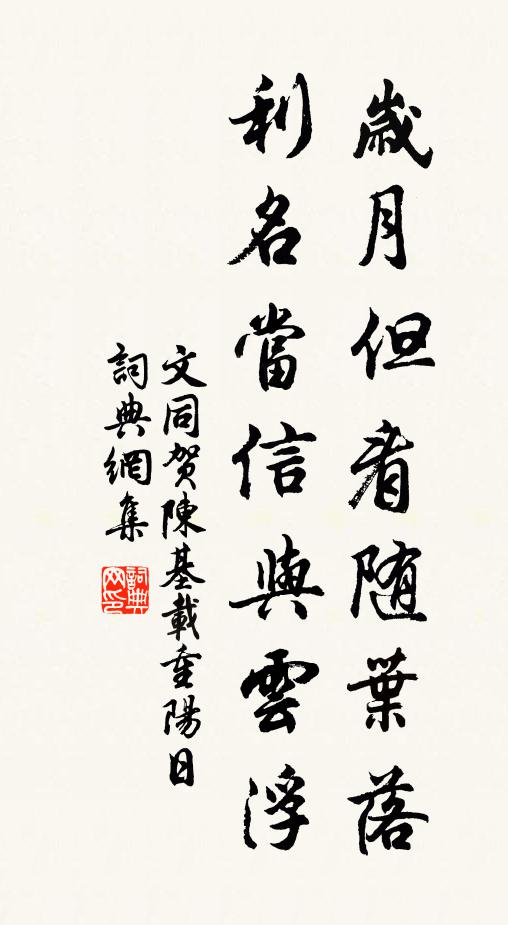 歲月但看随葉落
利名當信與雲浮
文同賀陳基載重陽日
詞典網集
詞典
网印